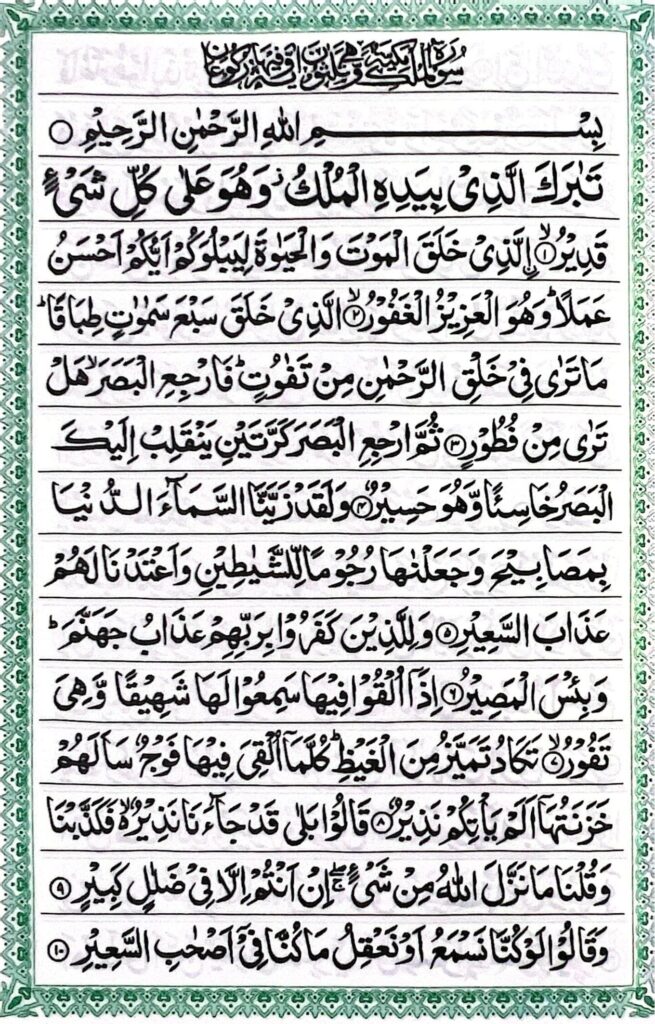 سُوْرَةُ الْمُلْكِ مَكِّيَّةٌ وَّهِيَ ثَلٰثُوْنَ اٰيَةً وَّفِيْهَا رُكُوْعَانِ
بِسْمِ اللهِ الرَّحْمٰنِ الرَّحِيْمِ ○
تَبٰرَكَ الَّذِيْ بِيَدِهِ الْمُلْكُ ز وَهُوَ عَلٰى كُلِّ شَيْءٍ
قَدِيْرُ ۙ﴿۱﴾ اِلَّذِيْ خَلَقَ الْمَوْتَ وَالْحَيٰوةَ لِيَبْلُوَكُمْ اَيُّكُمْ اَحْسَنُ
عَمَلًا ؕ وَهُوَ الْعَزِيْزُ الْغَفُوْرُ ۙ﴿۲﴾ الَّذِيْ خَلَقَ سَبْعَ سَمٰوٰتٍ طِبَاقًا ؕ
مَا تَرٰى فِيْ خَلْقِ الرَّحْمٰنِ مِنْ تَفٰوُتٍ ؕ فَارْجِعِ الْبَصَرَ ۙ هَلْ
تَرٰى مِنْ فُطُوْرٍ ﴿۳﴾ ثُمَّ ارْجِعِ الْبَصَرَ كَرَّتَيْنِ يَنْقَلِبْ اِلَيْكَ
الْبَصَرُ خَاسِئًا وَّهُوَ حَسِيْرٌ ﴿۴﴾ وَلَقَدْ زَيَّنَّا السَّمَآءَ الدُّنْيَا
بِمَصَابِيْحَ وَجَعَلْنٰهَا رُجُوْمًا لِّلشَّيٰطِيْنِ وَاَعْتَدْنَا لَهُمْ
عَذَابَ السَّعِيْرِ ﴿۵﴾ وَلِلَّذِيْنَ كَفَرُوْا بِرَبِّهِمْ عَذَابُ جَهَنَّمَ ؕ
وَبِئْسَ الْمَصِيْرُ ﴿۶﴾ اِذَآ اُلْقُوْا فِيْهَا سَمِعُوْا لَهَا شَهِيْقًا وَّهِيَ
تَفُوْرُ ۙ﴿۷﴾ تَكَادُ تَمَيَّزُ مِنَ الْغَيْظِ ؕ كُلَّمَآ اُلْقِيَ فِيْهَا فَوْجٌ سَاَلَهُمْ
خَزَنَتُهَآ اَلَمْ يَاْتِكُمْ نَذِيْرٌ ﴿۸﴾ قَالُوْا بَلٰى قَدْ جَآءَنَا نَذِيْرٌ ۙ۬ فَكَذَّبْنَا
وَقُلْنَا مَا نَزَّلَ اللهُ مِنْ شَيْءٍ ۚۖ اِنْ اَنْتُمْ اِلَّا فِيْ ضَلٰلٍ كَبِيْرٍ ﴿۹﴾
وَقَالُوْا لَوْ كُنَّا نَسْمَعُ اَوْ نَعْقِلُ مَا كُنَّا فِيْٓ اَصْحٰبِ السَّعِيْرِ ﴿۱۰﴾